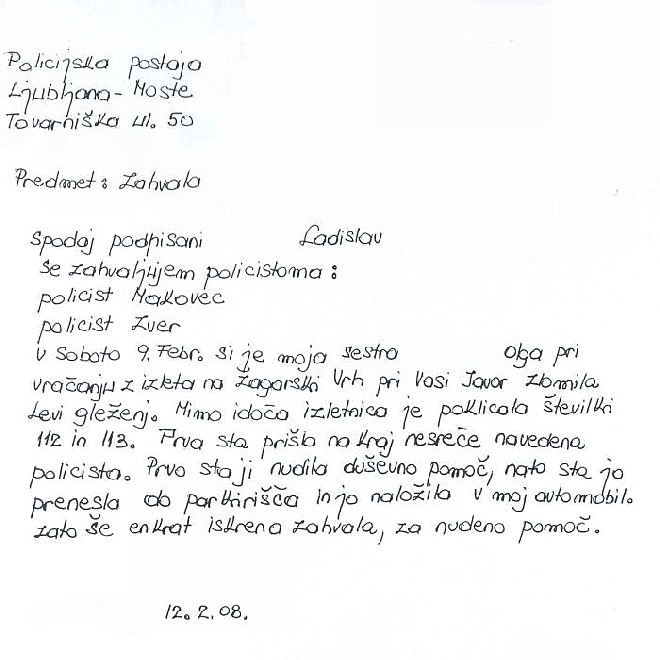 Policijska postaja
Ljubljana - Moste
Tovarniška ul. 50
Predmet: Zahvala
Spodaj podpisani Ladislav
se zahvaljujem policistoma:
policist Makovec
policist Zver
V Soboto 9. Febr. si je moja sestra Olga pri
vračanju z izleta na Žagarski Vrh pri Vasi Javor zlomila
Levi gleženj. Mimo idoča izletnica je poklicala številki
112 in 113. Prva sta prišla na kraj nesreče navedena
policista. Prvo sta ji nudila duševno pomoč, nato sta jo
prenesla do parkirišča in jo naložila v moj avtomobil.
zato še enkrat iskrena zahvala, za nudeno pomoč.
12. 2. 08.